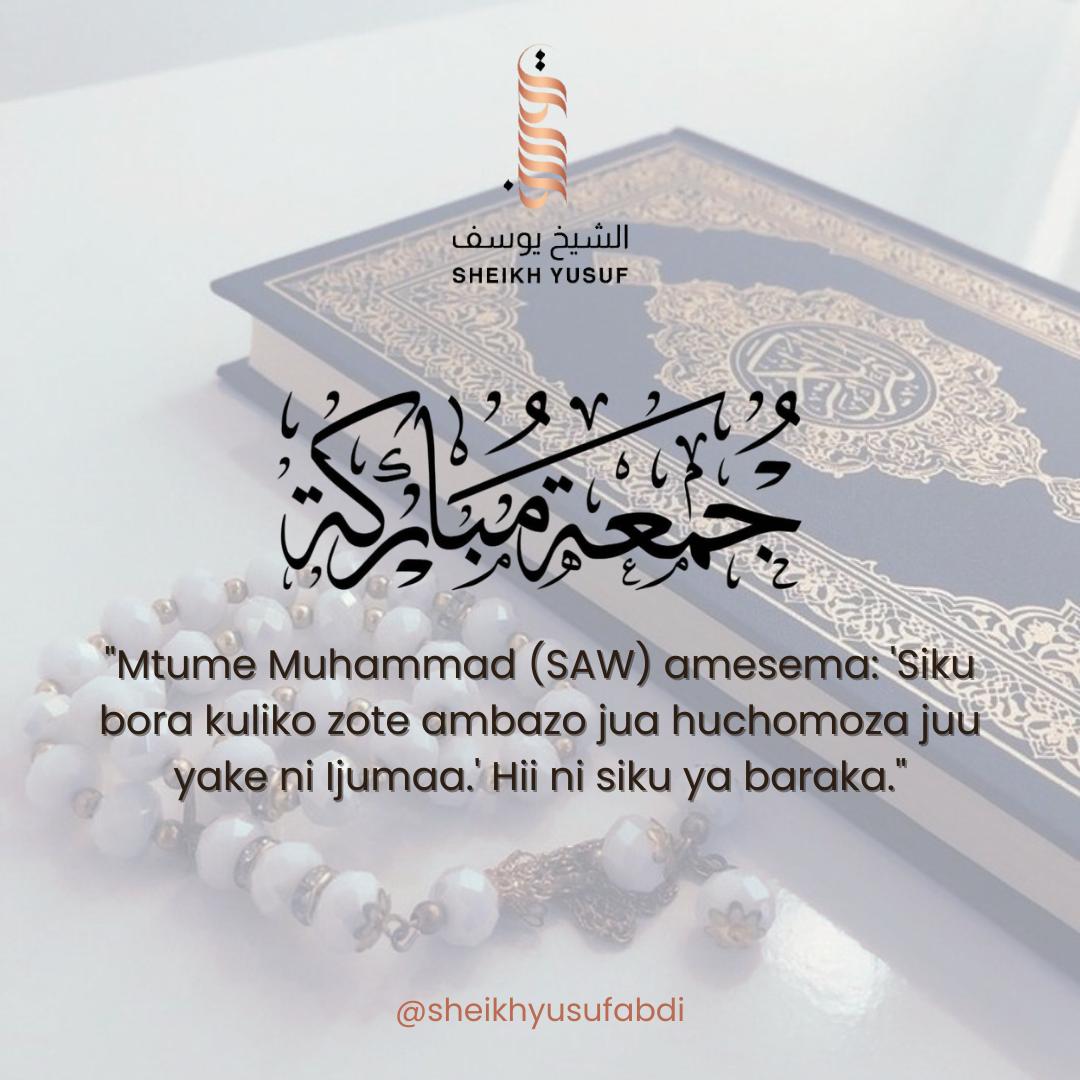 الشيخ يوسف
SHEIKH YUSUF
جُمعة مُباركة
"Mtume Muhammad (SAW) amesema: 'Siku
bora kuliko zote ambazo jua huchomoza juu
yake ni Ijumaa.' Hii ni siku ya baraka."
@sheikhyusufabdi